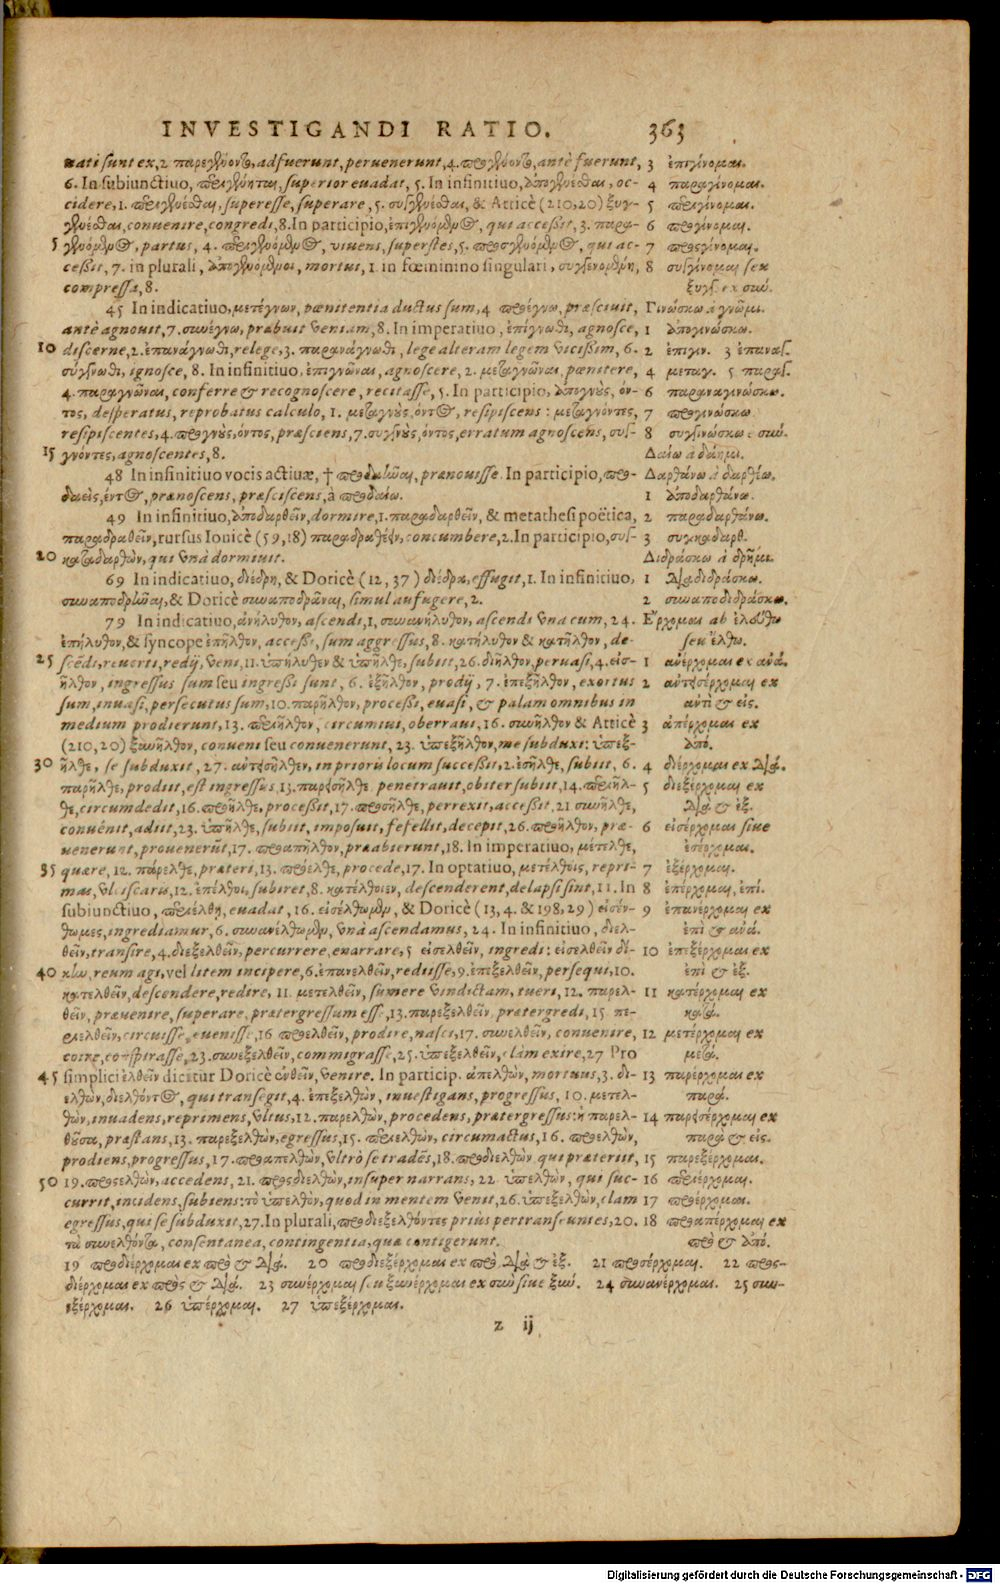 INVESTIGANDI RATIO. 363
nati sunt ex, 2 παρεγλύοντο, adfuerunt, peruenerunt, 4. προγλύοντο, antè fuerunt, 3 ἐπιγίνομαι.
6. In subiunctiuo, περιγλύηται, superior euadat, 5. In infinitiuo, ἀπογλυέσθαι, oc- 4 παραγίνομαι.
cidere, 1. περιγλυέσθαι, superesse, superare, 5. συγγλυέσθαι, & Atticè (210,20) ξυγ- 5 περιγίνομαι.
γλυέσθαι, conuenire, congredi, 8. In participio, ἐπιγλυόμενος, qui accessit, 3. παρα- 6 προγίνομαι.
5 γλυόμενος, partus, 4. περιγλυόμενος, viuens, superstes, 5. προσγλυόμενος, qui ac- 7 προσγίνομαι.
cessit, 7. in plurali, ἀπογλυόμενοι, mortui, 1. in fœminino singulari, συγγενομένη, 8 συγγίνομαι seu
compressa, 8. ξυγγ. ex σύν.
45 In indicatiuo, μετέγνων, pœnitentia ductus sum, 4 προέγνω, præsciuit, Γινώσκω à γνῶμι.
antè agnouit, 7. συνέγνω, præbuit veniam, 8. In imperatiuo, ἐπίγνωθι, agnosce, 1 ἀπογινώσκω.
10 discerne, 2. ἐπανάγνωθι, relege, 3. παρανάγνωθι, lege alteram legem vicissim, 6. 2 ἐπιγιν. 3 ἐπαναγ.
σύγγνωθι, ignosce, 8. In infinitiuo, ἐπιγνῶναι, agnoscere, 2. μεταγνῶναι, pœnitere, 4 μεταγ. 5 παραγ.
4. παραγνῶναι, conferre & recognoscere, recitasse, 5. In participio, ἀπογνοὺς, όν- 6 παραναγινώσκω.
τος, desperatus, reprobatus calculo, 1. μεταγνοὺς, όντος, resipiscens: μεταγνόντες, 7 προγινώσκω
resipiscentes, 4. προγνοὺς, όντος, præsciens, 7. συγγνοὺς, όντος, erratum agnoscens, συγ- 8 συγγινώσκω è σύν.
15 γνόντες, agnoscentes, 8. Δαίω à δάημι.
48 In infinitiuo vocis actiuæ, † προδαῆναι, prænouisse. In participio, προ- Δαρθάνω à δαρθέω.
δαεὶς, έντος, prænoscens, præsciscens, à προδαίω. 1 ἀποδαρθάνω.
49 In infinitiuo, ἀποδαρθεῖν, dormire, 1. παραδαρθεῖν, & metathesi poëtica, 2 παραδαρθάνω.
παραδραθεῖν, rursus Ionicè (59,18) παραδραθέειν, concumbere, 2. In participio, συγ- 3 συγκαδαρθ.
20 καταδαρθὼν, qui vnà dormiuit. Διδράσκω à δρῆμι.
69 In indicatiuo, διέδρη, & Doricè (12, 37) διέδρα, effugit, 1. In infinitiuo, 1 διαδιδράσκω.
συναποδρῆναι, & Doricè συναποδρᾶναι, simul aufugere, 2. 2 συναποδιδράσκω.
79 In indicatiuo, ἀνήλυθον, ascendi, 1, συνανήλυθον, ascendi vna cum, 24. Ἔρχομαι ab ἐλεύθω
ἐπήλυθον, & syncope ἐπῆλθον, accessi, sum aggressus, 8. κατήλυθον & κατῆλθον, de- seu ἔλθω.
25 scẽdi, reuerti, redij, veni, 11. ὑπήλυθεν & ὑπῆλθε, subiit, 26. διῆλθον, peruasi, 4. εἰσ- 1 ἀνέρχομαι ex ἀνά.
ῆλθον, ingressus sum seu ingressi sunt, 6. ἐξῆλθον, prodij, 7. ἐπεξῆλθον, exortus 2 αὐτεισέρχομαι ex
sum, inuasi, persecutus sum, 10. παρῆλθον, processi, euasi, & palam omnibus in ἀντὶ & εἰς.
medium prodierunt, 13. περιῆλθον, circumiui, oberraui, 16. συνῆλθον & Atticè 3 ἀπέρχομαι ex
(210,20) ξυνῆλθον, conueni seu conuenerunt, 23. ὑπεξῆλθον, me subduxi: ὑπεξ- ἀπό.
30 ῆλθε, se subduxit, 27. αὐτεισῆλθεν, in prioris locum successit, 2. ἐσῆλθε, subiit, 6. 4 διέρχομαι ex διά.
παρῆλθε, prodiit, est ingressus, 13. παρεισῆλθε, penetrauit, obiter subiit, 14. περιῆλ- 5 διεξέρχομαι ex
θε, circumdedit, 16. προῆλθε, processit, 17. προσῆλθε, perrexit, accessit, 21 συνῆλθε, διὰ & ἐξ.
conuênit, adiit, 23. ὑπῆλθε, subiit, imposuit, fefellit, decepit, 26. προῆλθον, præ- 6 εἰσέρχομαι siue
uenerunt, prouenerũt, 17. προαπῆλθον, præabierunt, 18. In imperatiuo, μέτελθε, ἐσέρχομαι.
35 quære, 12. πάρελθε, præteri, 13. πρόελθε, procede, 17. In optatiuo, μετέλθοις, repri- 7 ἐξέρχομαι.
mas, vlciscaris, 12. ἐπέλθοι, subiret, 8. κατέλθοιεν, descenderent, delapsi sint, 11. In 8 ἐπέρχομαι, ἐπί.
subiunctiuo, περιέλθῃ, euadat, 16. εἰσέλθωμεν, & Doricè (13, 4. & 198, 29) εἰσέν- 9 ἐπανέρχομαι ex
θωμες, ingrediamur, 6. συνανέλθωμεν, vnà ascendamus, 24. In infinitiuo, διελ- ἐπὶ & ἀνά.
θεῖν, transire, 4. διεξελθεῖν, percurrere, enarrare, 5 εἰσελθεῖν, ingredi: εἰσελθεῖν δί- 10 ἐπεξέρχομαι ex
40 κην, reum agi, vel litem incipere, 6. ἐπανελθεῖν, rediisse, 9. ἐπεξελθεῖν, persequi, 10. ἐπὶ & ἐξ.
κατελθεῖν, descendere, redire, 11. μετελθεῖν, sumere vindictam, tueri, 12. παρελ- 11 κατέρχομαι ex
θεῖν, præuenire, superare, prætergressum esse, 13. παρεξελθεῖν, prætergredi, 15 πε- κατά.
ριελθεῖν, circuisse, euenisse, 16 προελθεῖν, prodire, nasci, 17. συνελθεῖν, conuenire, 12 μετέρχομαι ex
coire, conspirasse, 23. συνεξελθεῖν, commigrasse, 25. ὑπεξελθεῖν, clàm exire, 27 Pro μετά.
45 simplici ἐλθεῖν dicitur Doricè ἐνθεῖν, venire. In particip. ἀπελθὼν, mortuus, 3. δι- 13 παρέρχομαι ex
ελθὼν, διελθόντος, qui transegit, 4. ἐπεξελθὼν, inuestigans, progressus, 10. μετελ- παρά.
θὼν, inuadens, reprimens, vltus, 12. παρελθὼν, procedens, prætergressus: ἡ παρελ- 14 παρεισέρχομαι ex
θοῦσα, præstans, 13. παρεξελθὼν, egressus, 15. περιελθὼν, circumactus, 16. προελθὼν, παρὰ & εἰς.
prodiens, progressus, 17. προαπελθὼν, vltrò se tradẽs, 18. προδιελθὼν qui præteriit, 15 παρεξέρχομαι.
50 19. προσελθὼν, accedens, 21. προσδιελθὼν, insuper narrans, 22 ὑπελθὼν, qui suc- 16 περιέρχομαι.
currit, incidens, subiens: τὸ ὑπελθὸν, quod in mentem venit, 26. ὑπεξελθὼν, clam 17 προέρχομαι.
egressus, qui se subduxit, 27. In plurali, προδιεξελθόντες priùs pertranseuntes, 20. 18 προαπέρχομαι ex
τὰ συνελθόντα, consentanea, contingentia, quæ contigerunt. πρὸ & ἀπό.
19 προδιέρχομαι ex πρὸ & διά. 20 προδιεξέρχομαι ex πρὸ διὰ & ἐξ. 21 προσέρχομαι. 22 προσ-
διέρχομαι ex πρὸς & διά. 23 συνέρχομαι seu ξυνέρχομαι ex σὺν siue ξύν. 24 συνανέρχομαι. 25 συν-
εξέρχομαι. 26 ὑπέρχομαι. 27 ὑπεξέρχομαι.
z ij
Digitalisierung gefördert durch die Deutsche Forschungsgemeinschaft - DFG